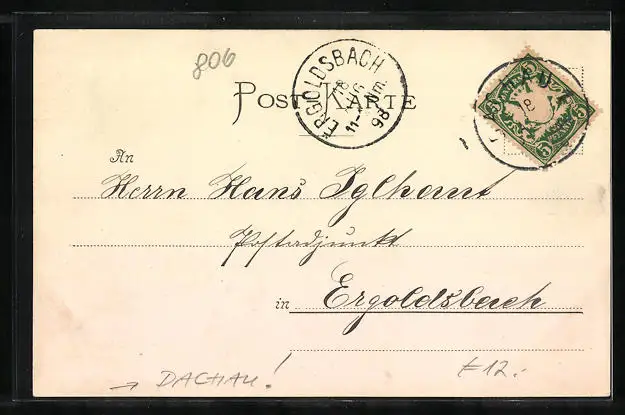 806
ERGOLDSBACH
18
AUG
11-1 Nm.
98
POST KARTE
5 5
An
Herrn Hans Iglhaut
Postadjunkt
in Ergoldsbach
→ DACHAU!
€12.-